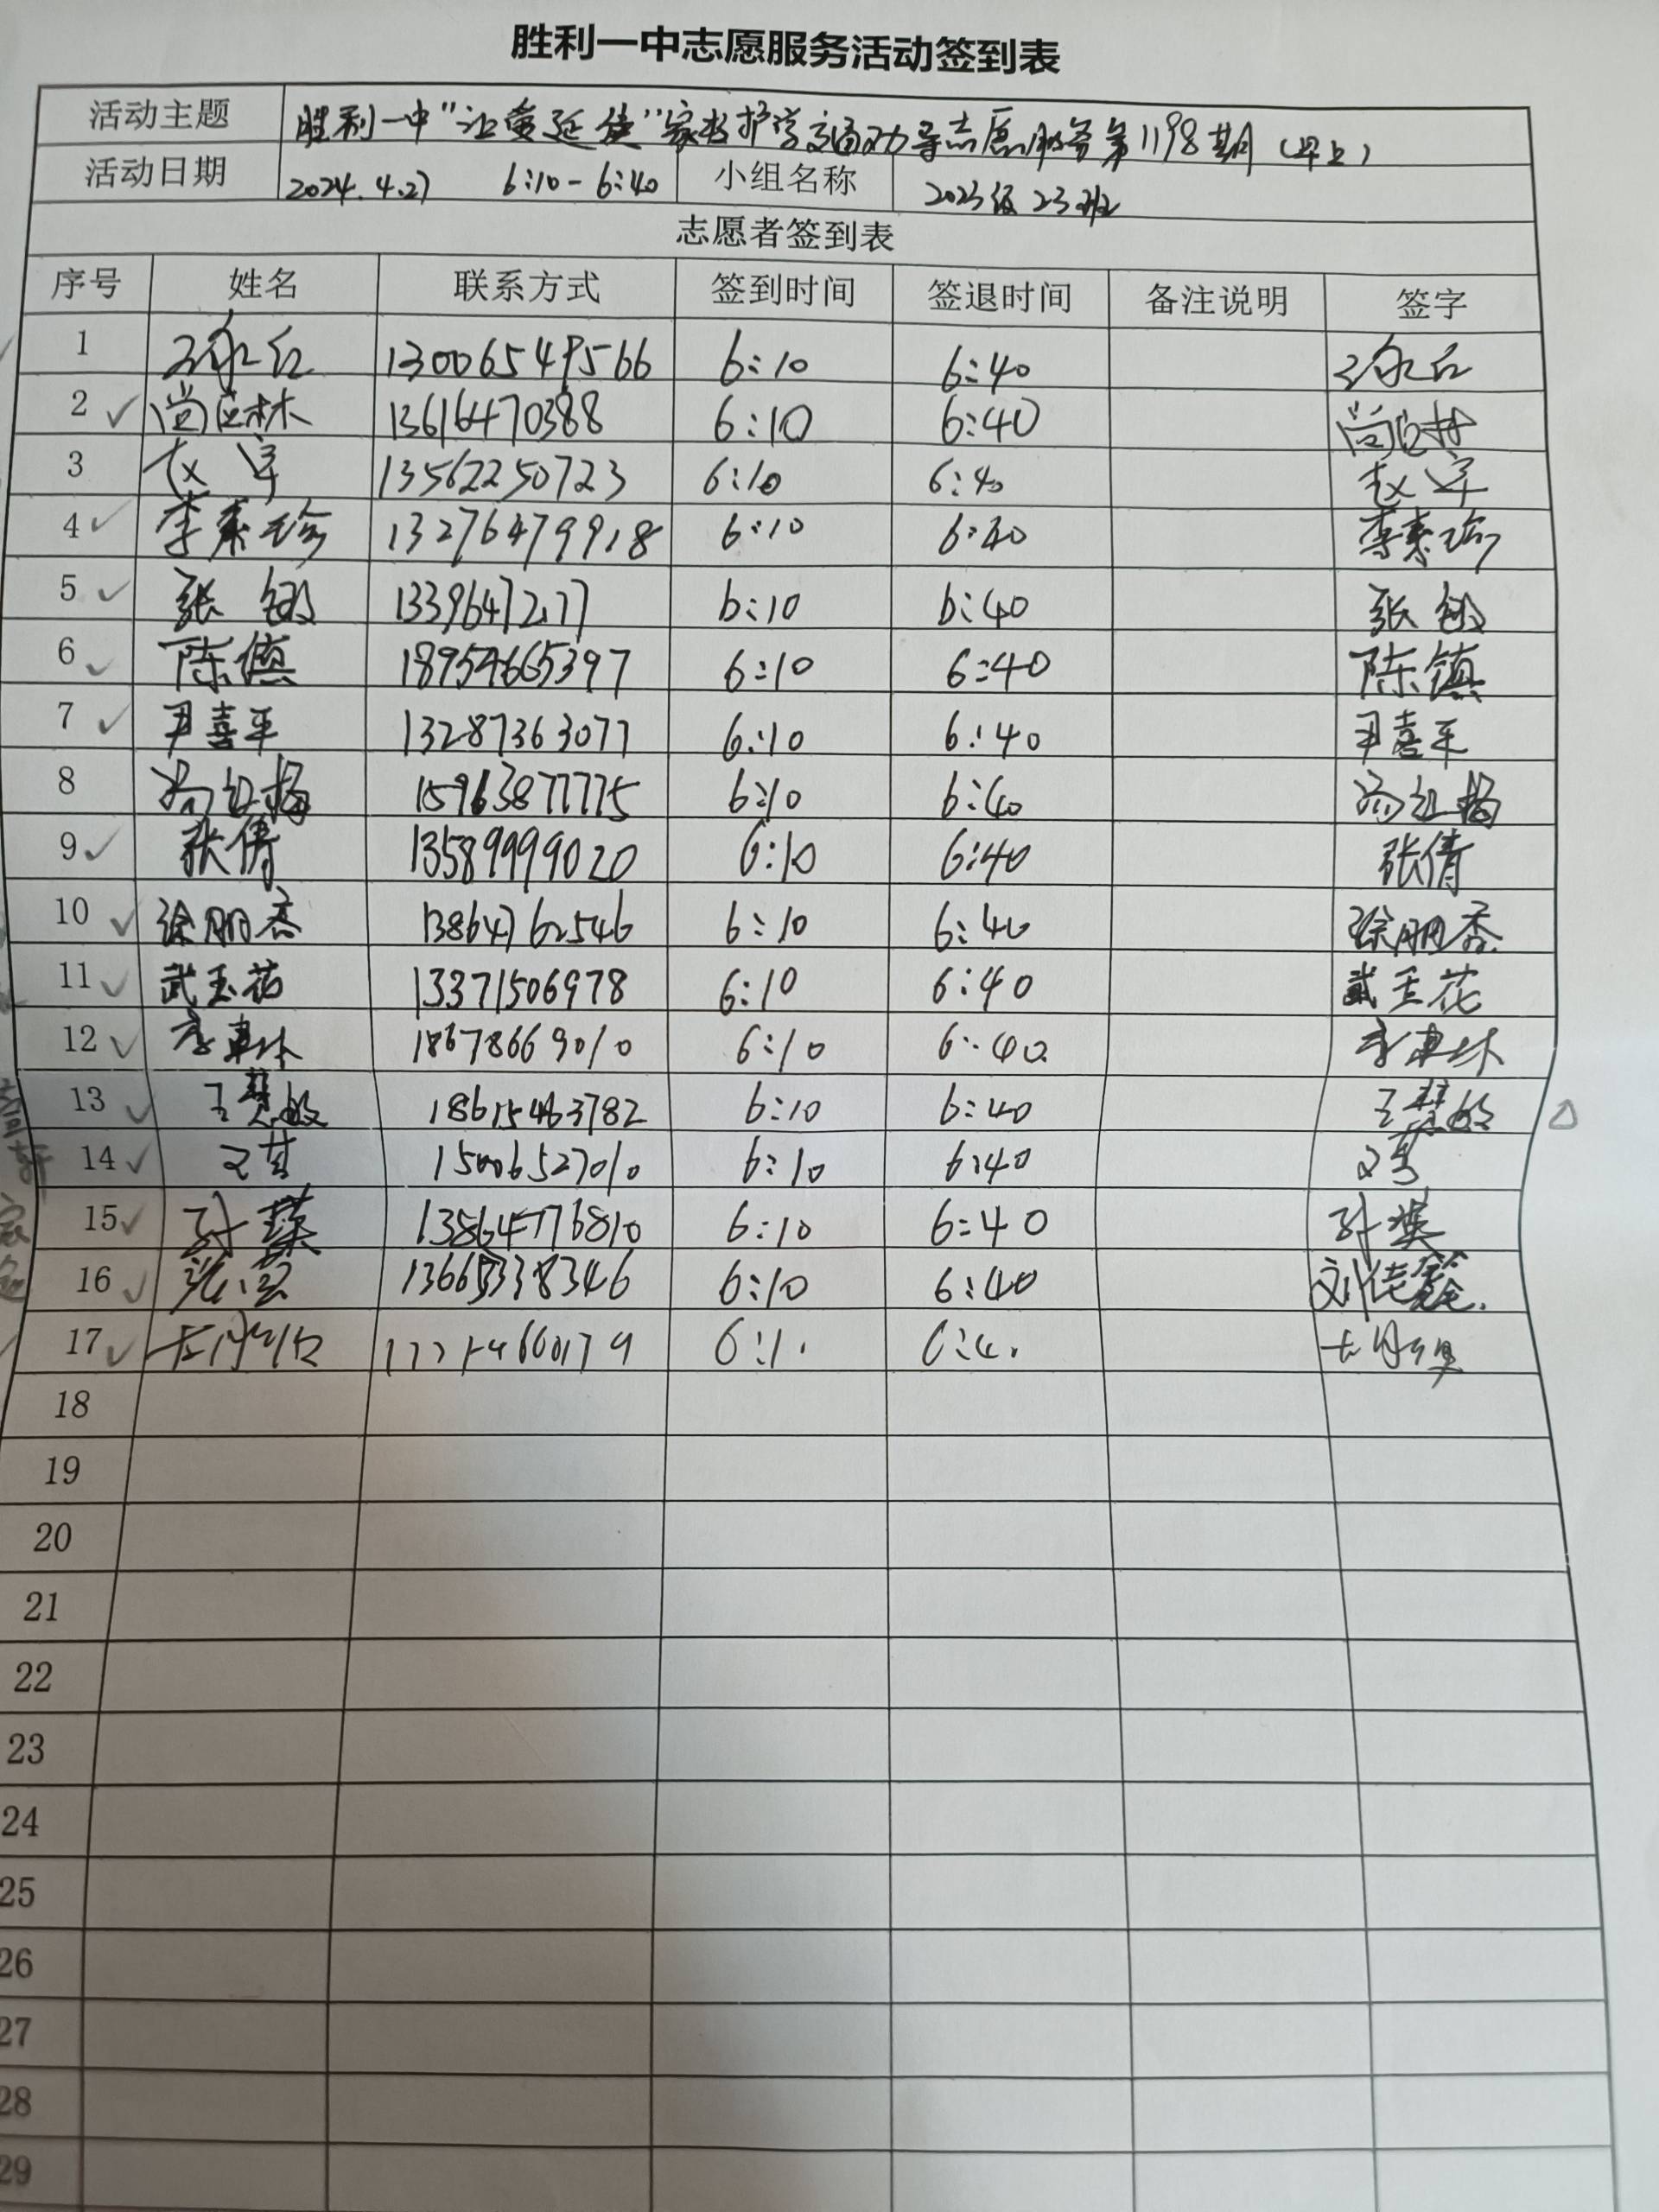 胜利一中志愿服务活动签到表
活动主题 胜利一中"让爱延续"家长护学交通劝导志愿服务第1198期(早上)
活动日期 2024.4.27 6:10-6:40 小组名称 2023级23班
志愿者签到表
序号 姓名 联系方式 签到时间 签退时间 备注说明 签字
1 13006549566 6:10 6:40
2 13616470388 6:10 6:40
3 13562250723 6:10 6:40 赵
4 李素珍 13276479918 6:10 6:40 李素珍
5 张敏 6:10 6:40 张敏
6 陈镇 18954665397 6:10 6:40 陈镇
7 尹喜平 13287363077 6:10 6:40 尹喜平
8 15963877775 6:10 6:40
9 张倩 13589999020 6:10 6:40 张倩
10 徐丽香 13864762546 6:10 6:40 徐丽香
11 武玉花 13371506978 6:10 6:40 武玉花
12 李 18678669010 6:10 6:40 李
13 王慧敏 18615463782 6:10 6:40 王慧敏
14 15006527010 6:10 6:40
15 孙英 13864776810 6:10 6:40 孙英
16 6:10 6:40 刘佳鑫
17
18
19
20
21
22
23
24
25
26
27
28
29